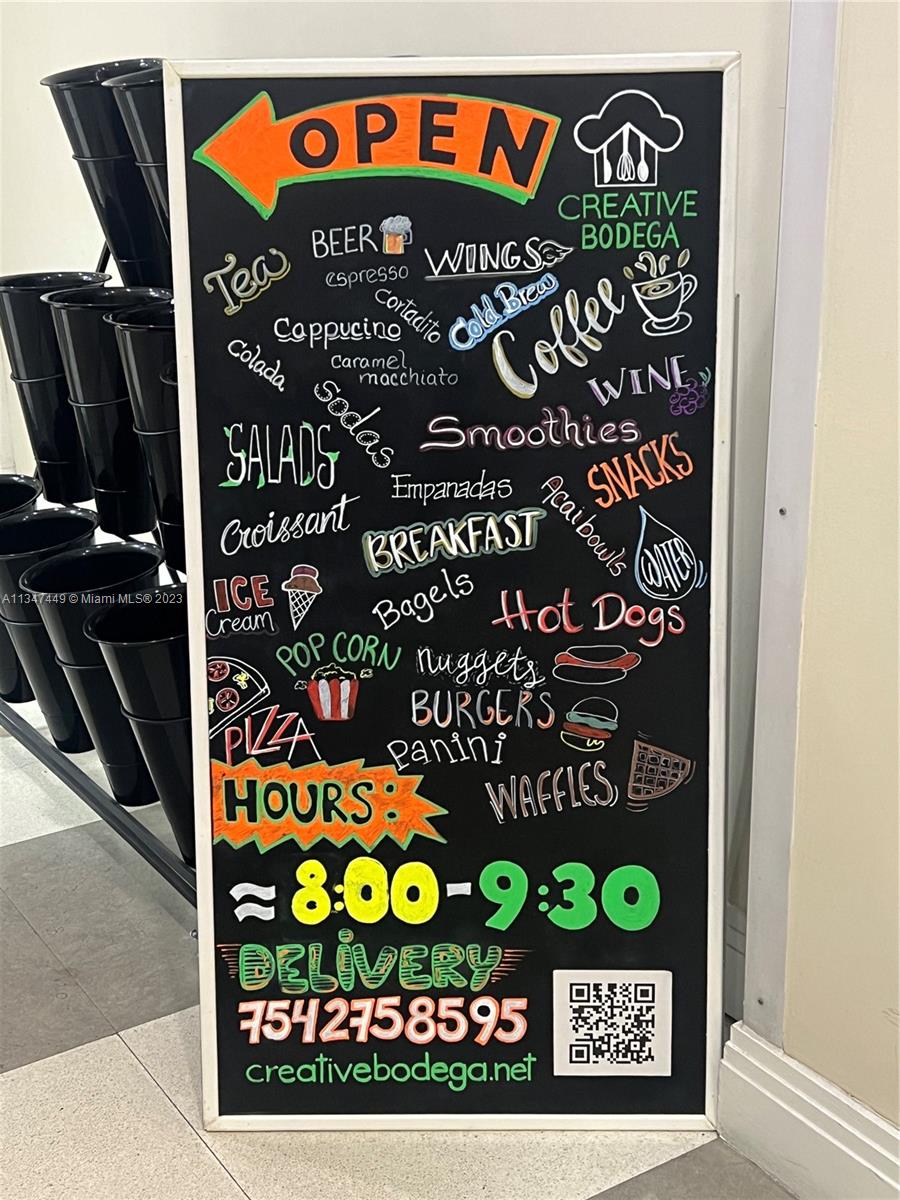 OPEN
CREATIVE
BODEGA
Tea
BEER
espresso
WINGS
Cortadito
Cold Brew
Coffee
Cappucino
Colada
Caramel
macchiato
WINE
Sodas
Smoothies
SALADS
SNACKS
Empanadas
Acai bowls
Croissant
BREAKFAST
WATER
A11347449 © Miami MLS® 2023
ICE
Cream
Bagels
Hot Dogs
POP CORN
Nuggets
BURGERS
PIZZA
Panini
WAFFLES
HOURS:
≈ 8:00-9:30
DELIVERY
7542758595
creativebodega.net